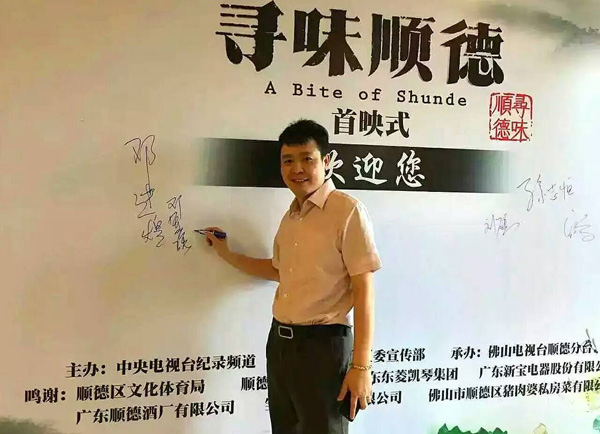 寻味顺德
A Bite of Shunde
首映式
寻味順德
欢迎您
孙志恒
主办：中央电视台纪录频道
区委宣传部
承办：佛山电视台顺德分台
鸣谢：顺德区文化体育局
顺德
广东东菱凯琴集团
广东新宝电器股份有限公
广东顺德酒厂有限公司
限公司
佛山市顺德区猪肉婆私房菜有限公